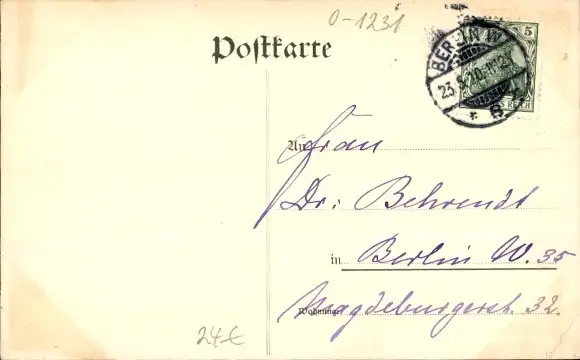 0-1231
Postkarte
5
BERLIN W.
23.5.10.11-12V.
* 8
S REICH
An Frau
Dr: Behrendt
in Berlin W. 35
Wohnung: Magdeburgerst. 32.
24€